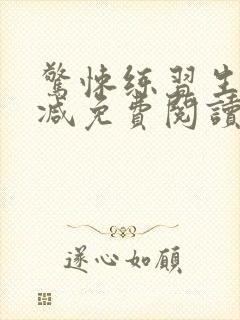 驚悚練習生
減免費閱讀
遂心如願